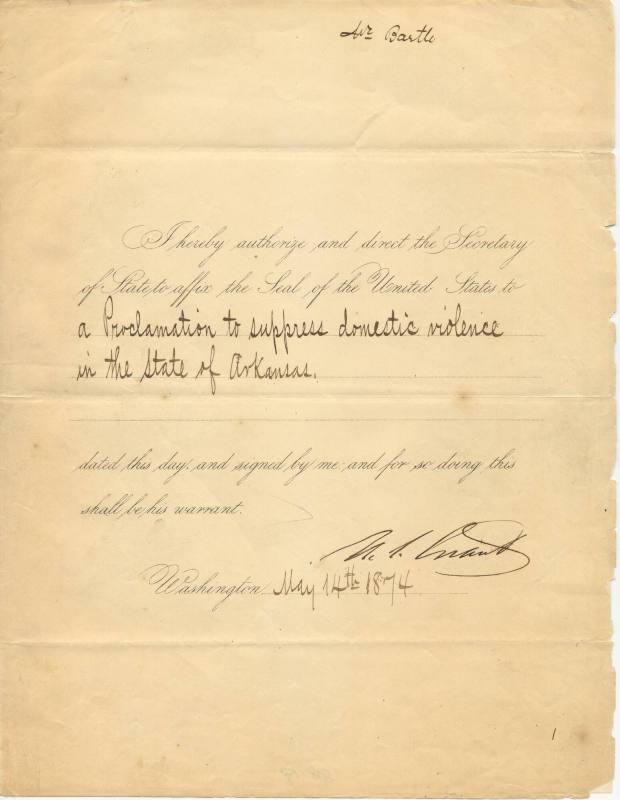 Mr Bartle
I hereby authorize and direct the Secretary
of State to affix the Seal of the United States to
a Proclamation to suppress domestic violence
in the State of Arkansas.
dated this day, and signed by me; and for so doing this
shall be his warrant.
U. S. Grant
Washington May 14th 1874
1